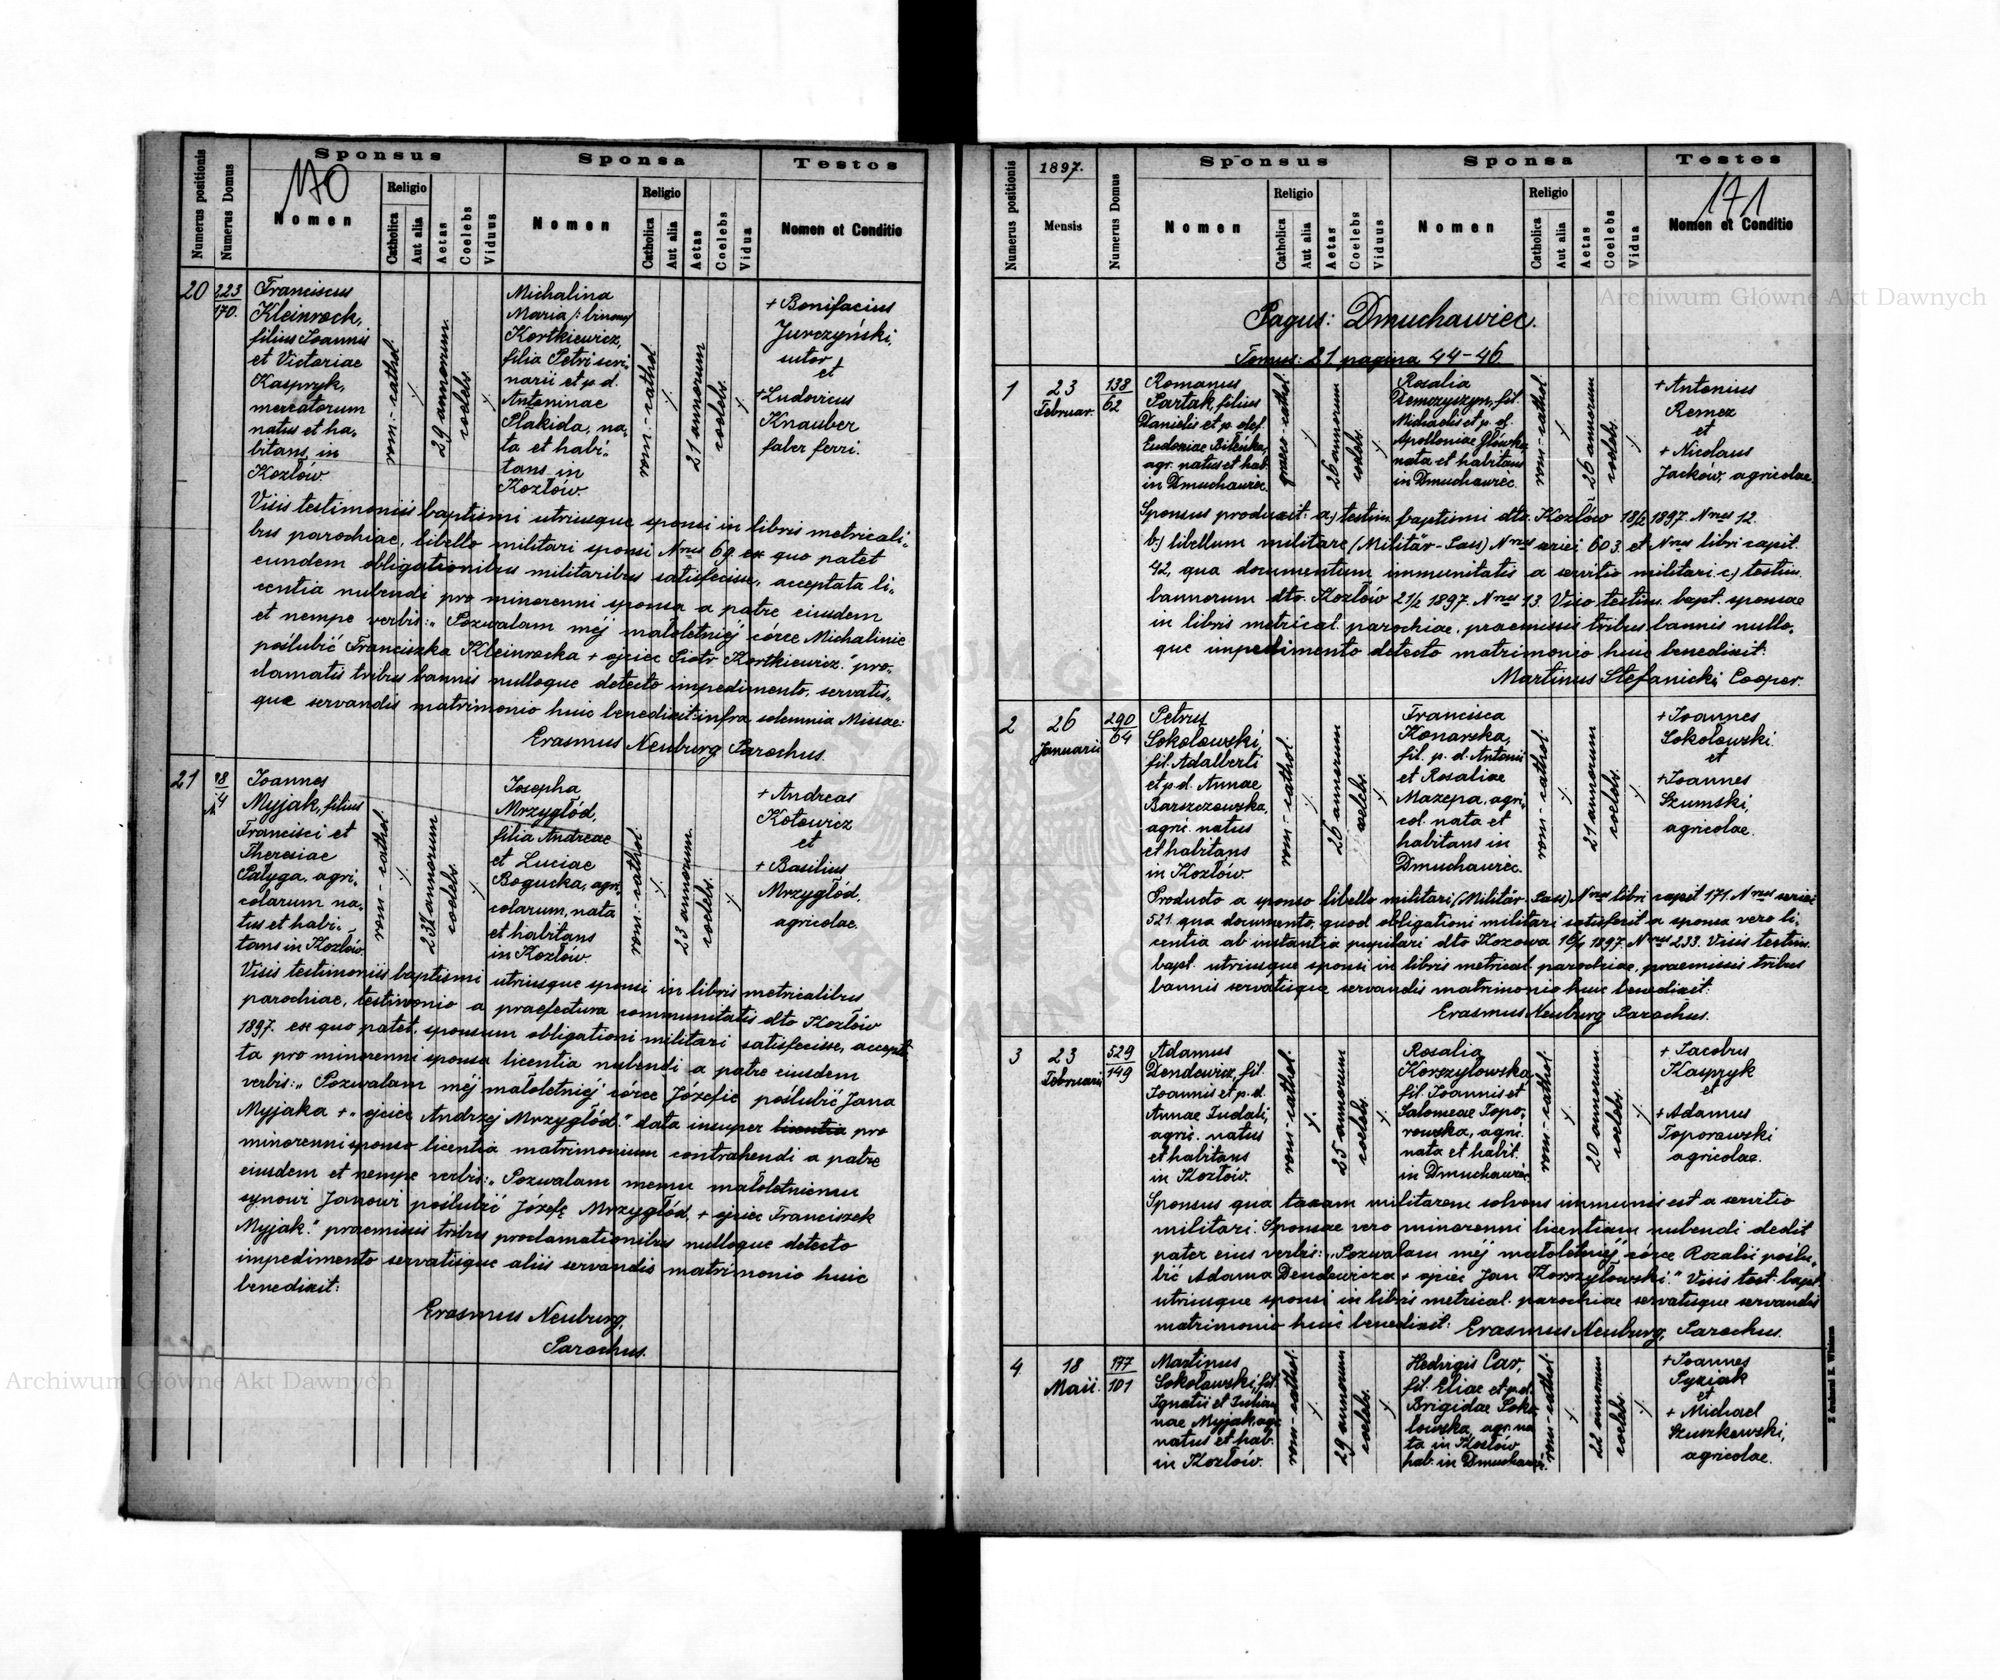 Numerus positionis
Numerus Domus
Sponsus
Sponsa
Testes
170
Nomen
Religio
Catholica
Aut alia
Aetas
Coelebs
Viduus
Nomen
Religio
Catholica
Aut alia
Aetas
Coelebs
Vidua
Nomen et Conditio
20
223
170.
Franciscus
Kleinrock,
filius Joannis
et Victoriae
Kaspryk,
mercatorum
natus et ha-
bitans in
Kozłów.
rom.-cathol.
29 annorum.
coelebs.
Michalina
Maria /: binom/
Kortkiewicz,
filia Petri scri-
narii et p.d.
Antoninae
Plakida, na-
ta et habi-
tans in
Kozłów.
rom.-cathol.
21 annorum
coelebs.
+ Bonifacius
Jurczyński,
sutor
et
+ Ludovicus
Knauber
faber ferri.
Visis testimoniis baptismi utriusque sponsi in libris metricali-
bus parochiae, libello militari sponsi Nrus 69. ex quo patet
eundem obligationibus militaribus satisfecisse, acceptata li-
centia nubendi pro minorenni sponsa a patre eiusdem
et nempe verbis: „Pozwalam mej małoletniéj córce Michalinie
poślubić Franciszka Kleinrocka + ojciec Piotr Kortkiewicz." pro-
clamatis tribus bannis nulloque detecto impedimento, servatis-
que servandis matrimonio huic benedixit: infra solemnia Missae:
Erasmus Neuburg Parochus.
21
Joannes
Myjak, filius
Francisci et
Theresiae
Pałyga, agri-
colarum na-
tus et habi-
tans in Kozłów.
rom-cathol
23½ annorum
coelebs.
Josepha
Mrzygłód,
filia Andreae
et Luciae
Bogucka, agri
colarum, nata
et habitans
in Kozłów.
rom.-cathol
23 annorum.
coelebs.
+ Andreas
Kotowicz
et
+ Basilius
Mrzygłód,
agricolae.
Visis testimoniis baptismi utriusque sponsi in libris metricalibus
parochiae, testimonio a praefectura communitatis dto Kozłów
1897. ex quo patet, sponsum obligationi militari satisfecisse, accept-
ta pro minorenni sponsa licentia nubendi a patre eiusdem
verbis: „Pozwalam méj małoletniéj córce Józefie poślubić Jana
Myjaka + „ojciec Andrzej Mrzygłód." data insuper licentia pro
minorenni sponso licentia matrimonium contrahendi a patre
eiusdem et nempe verbis: „Pozwalam memu małoletniemu
synowi Janowi poślubić Józefę Mrzygłód, + ojciec Franciszek
Myjak." praemissis tribus proclamationibus nulloque detecto
impedimento servatisque aliis servandis matrimonio huic
benedixit:
Erasmus Neuburg,
Parochus.
Numerus positionis
1897.
Mensis
Numerus Domus
Sponsus
Sponsa
Testes
171
Nomen
Religio
Catholica
Aut alia
Aetas
Coelebs
Viduus
Nomen
Religio
Catholica
Aut alia
Aetas
Coelebs
Vidua
Nomen et Conditio
Pagus: Dmuchawiec.
Tomus: 21 pagina 44-46
1
23
Februar.
138
62
Romanus
Partak, filius
Danielis et p. def.
Eudoxiae Bileńka,
agr. natus et hab.
in Dmuchawiec.
graeco-cathol.
26 annorum
coelebs.
Rosalia
Demczyszyn, fil.
Michaelis et p. d.
Apolloniae Główka,
nata et habitans
in Dmuchawiec.
rom-cathol.
26 annorum
coelebs.
+ Antonius
Remez
et
+ Nicolaus
Jacków, agricolae.
Sponsus produxit: a.) testim. baptismi dto. Kozłów 18/2 1897. Nrus 12.
b.) libellum militare (Militär-Pass) Nrus seriei 603. et Nrus libri capit.
42, qua documentum immunitatis a servitio militari c.) testim.
bannorum dto. Kozłów 21/2 1897. Nrus 13. Viso testim. bapt. sponsae
in libris metrical. parochiae, praemissis tribus bannis nullo-
que impedimento detecto matrimonio huic benedixit:
Martinus Stefanicki Cooper.
2
26
Januarii
290
64
Petrus
Sokołowski,
fil. Adalberti
et p.d. Annae
Barszczowska,
agric. natus
et habitans
in Kozłów.
rom-cathol.
26 annorum
coelebs.
Francisca
Konarska,
fil. p. d. Antonii
et Rosaliae
Mazepa, agri,
col. nata et
habitans in
Dmuchawiec.
rom-cathol.
21 annorum
coelebs.
+ Joannes
Sokołowski.
et
+ Joannes
Szumski,
agricolae.
Producto a sponso libello militari (Militär-Pass) Nrus libri capit 171. Nrus seriei
521. qua documento, quod obligationi militari satisfecit a sponsa vero li-
centia ab instantia pupilari dto Kozowa 16/1 1897. Nrus 233. Visis testim.
bapt. utriusque sponsi in libris metrical. parochiae, praemissis tribus
bannis servatisque servandis matrimonio huic benedixit:
Erasmus Neuburg Parochus.
3
23
Februarii
529
149
Adamus
Dendewicz, fil.
Joannis et p. d.
Annae Tudali,
agric. natus
et habitans
in Kozłów.
rom-cathol.
25 annorum
coelebs.
Rosalia
Korszyłowska,
fil. Joannis et
Salomeae Topo-
rowska, agric.
nata et habit.
in Dmuchawiec
rom-cathol.
20 annorum.
coelebs.
+ Jacobus
Kaspryk
et
+ Adamus
Toporowski
agricolae.
Sponsus qua taxam militarem solvens immunis est a servitio
militari. Sponsae vero minorenni licentiam nubendi dedit
pater eius verbis: „Pozwalam méj małoletniéj córce Rozalii poślu-
bić Adama Dendewicza + ojciec Jan Korszyłowski." Visis test. bapt.
utriusque sponsi in libris metrical. parochiae servatisque servandis
matrimonio huic benedixit: Erasmus Neuburg, Parochus.
4
18
Maii.
177
101
Martinus
Sokołowski, fil.
Ignatii et Julian-
nae Myjak, agr.
natus et hab.
in Kozłów.
rom-cathol.
29 annorum
coelebs.
Hedvigis Car,
fil. Eliae et p.d.
Brigidae Soko-
łowska, agr. na
ta in Kozłów
hab. in Dmuchawi
rom-cathol.
22 annorum
coelebs.
+ Joannes
Pyziak
et
+ Michael
Szuszkowski,
agricolae.
Z drukarni E. Winiarza
Archiwum Główne Akt Dawnych
Archiwum Główne Akt Dawnych